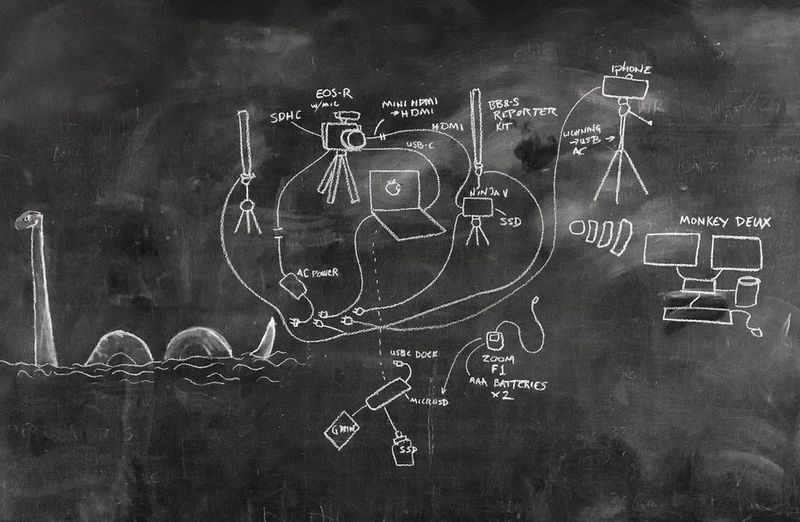 iPHONE
EOS-R
W/MIC
SDHC
MINI HDMI
→ HDMI
HDMI
USB-C
BB&S
REPORTER
KIT
LIGHTNING
→ USB →
AC
NINJA V
SSD
MONKEY DELUX
AC POWER
USBC DOCK
MICROSD
G DRIVE
SSD
ZOOM
F1
AAA BATTERIES
X2